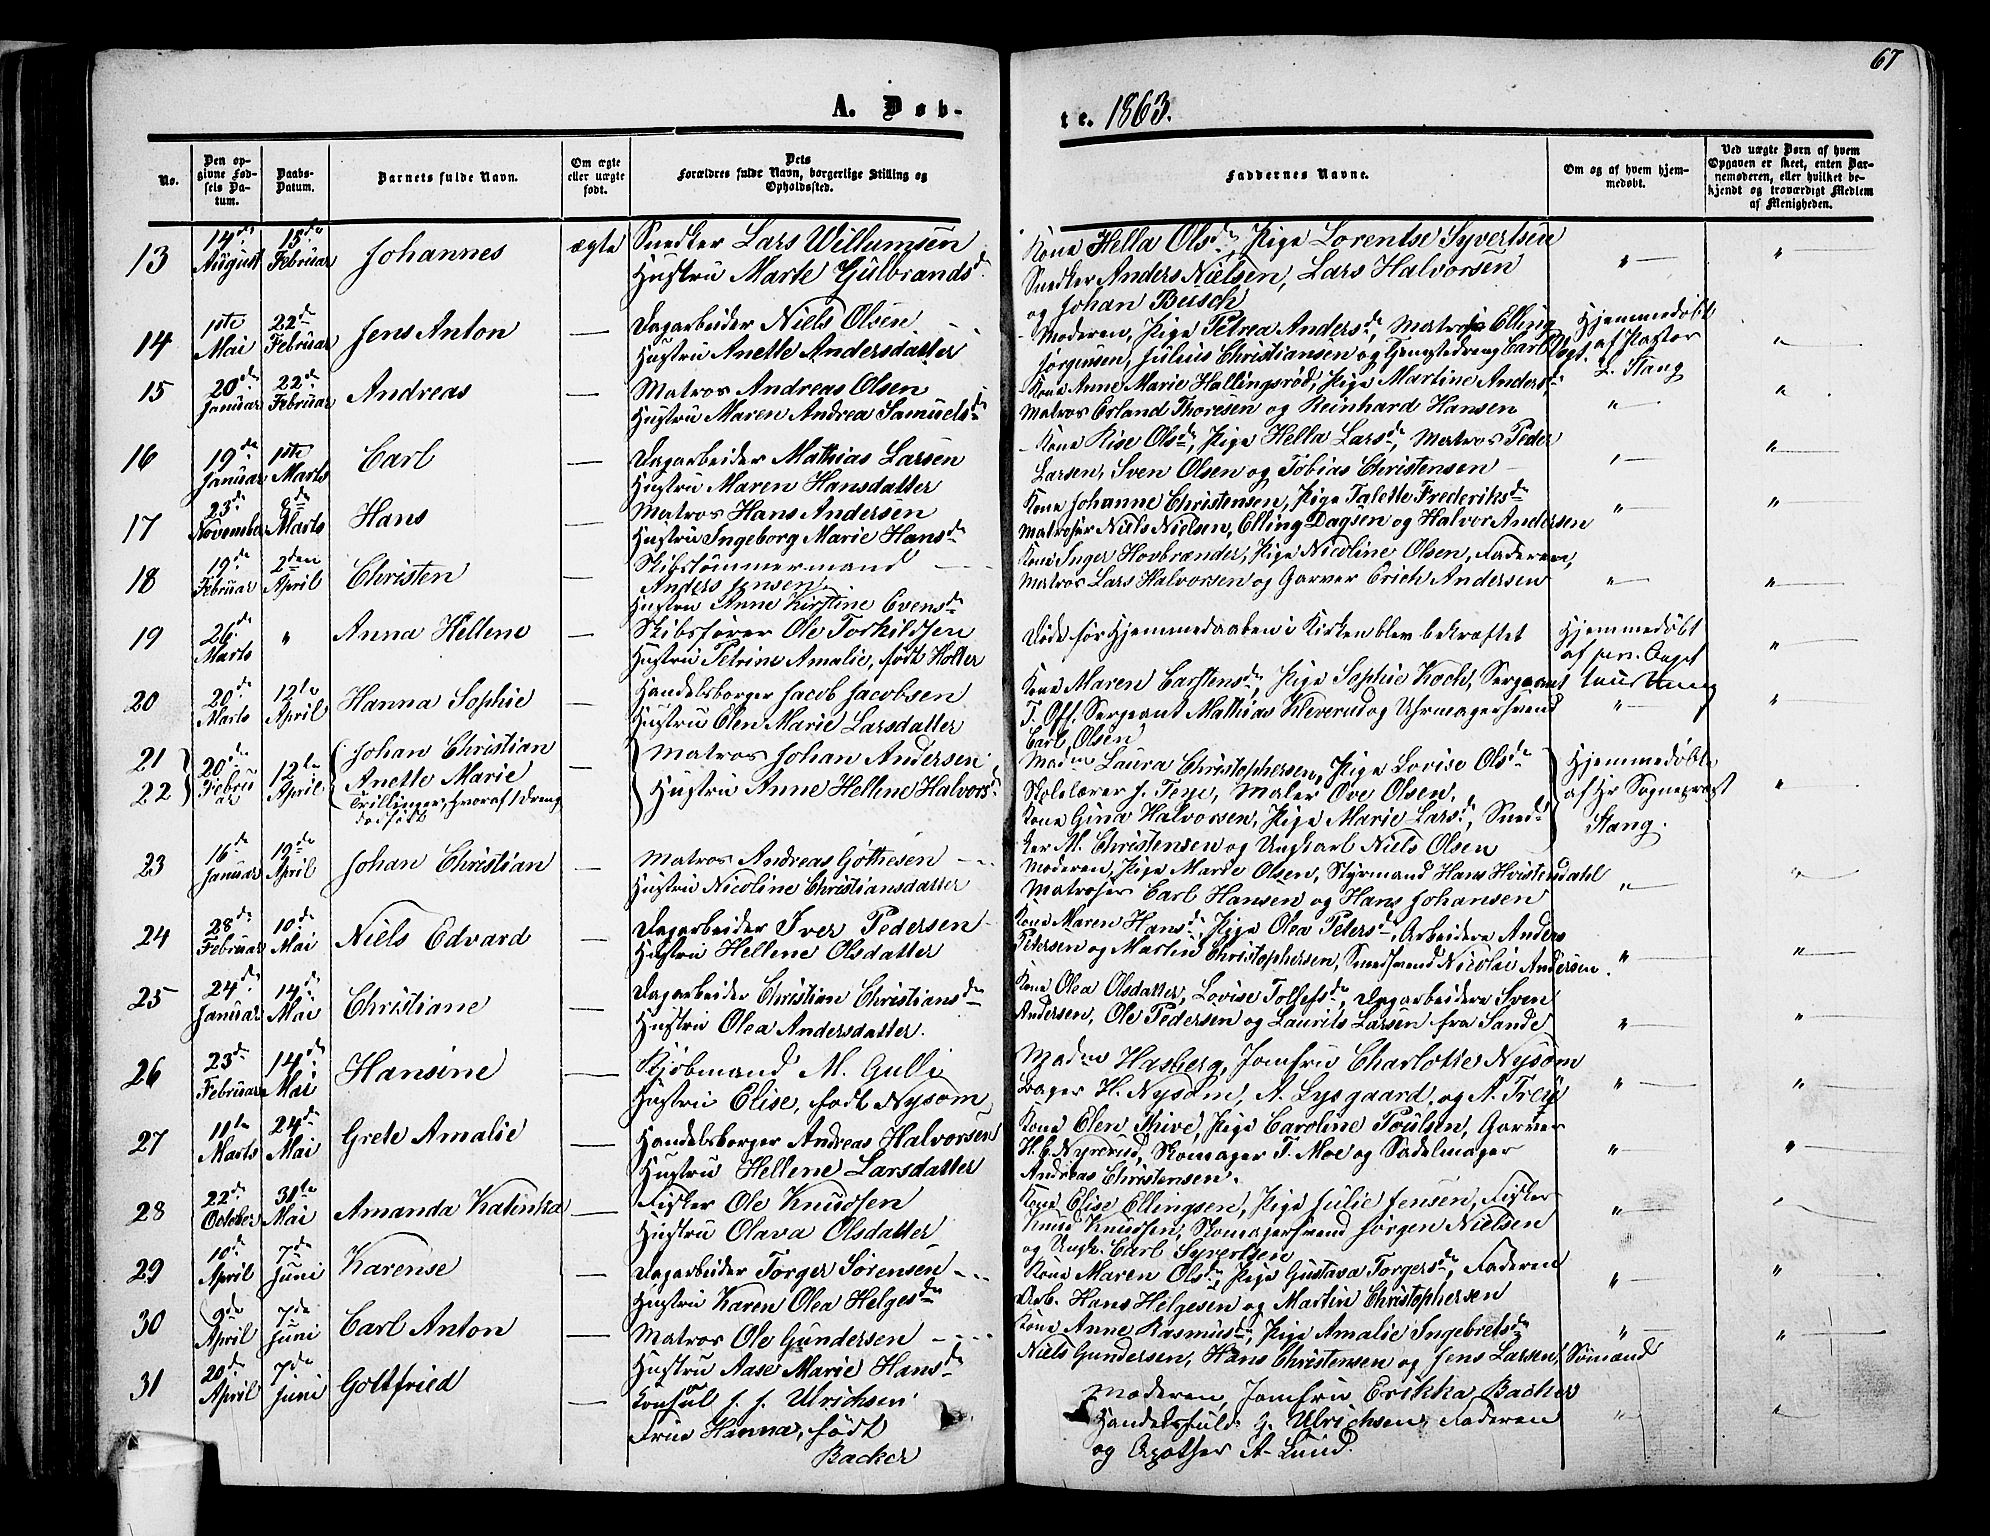 67
A. Døb-
te. 1863.
No.
Den op-
givne Fød-
sels Da-
tum.
Daabs-
Datum.
Barnets fulde Navn.
Om ægte
eller uægte
født.
Dets
Forældres fulde Navn, borgerlige Stilling og
Opholdssted.
Faddernes Navne.
Om og af hvem hjem-
medøbt.
Ved uægte Børn af hvem
Opgaven er skeet, enten Bar-
nemoderen, eller hvilket be-
kjendt og troværdigt Medlem
af Menigheden.
13 14de August 15de Februar Johannes ægte Snedker Lars Willumsen
Hustru Marte Gulbrandsd.
Kone Hella Olsdr, Pige Lorentse Syvertsen
Snedker Anders Nielsen, Lars Halvorsen
og Johan Beisch
14 1ste Mai 22de Februar Jens Anton — Dagarbeider Niels Olsen
Hustru Anette Andersdatter
Moderen, Pige Petrea Andersdr, Matros Elling
Jørgensen, Julius Christiansen og Tjenestedreng Carl
Hjemmedøbt
af Pastor
L. Stang
15 20de Januar 22de Februar Andreas — Matros Andreas Olsen
Hustru Maren Andrea Samuelsdr
Kone Anne Marie Hallingsrød, Pige Martine Andersdr,
Matros Erland Thoresen og Reinhard Hansen
16 19de Januar 1ste Marts Carl — Dagarbeider Mathias Larsen
Hustru Maren Hansdatter
Kone Kise Olsdr, Pige Hella Larsdr, Matros Peder
Larsen, Sven Olsen og Tobias Christensen
17 23de November 8de Marts Hans — Matros Hans Andersen
Hustru Ingeborg Marie Hansdr
Kone Johanne Christensen, Pige Talette Frederiksdr
Matroser Niels Nielsen, Elling Dagsen og Halvor Andersen
18 19de Februar 2den April Christen — Skibstømmermand
Anders Jensen
Hustru Anne Kirstine Evensdr
Kone Inger Hovbrænder, Pige Nicoline Olsen, Faderen,
Matros Lars Halvorsen og Garver Erich Andersen
19 26de Marts " Anna Hellene — Skibsfører Ole Torkildsen
Hustru Petrine Amalie, født Holter
Døde før Hjemmedaaben i Kirken blev bekræftet
Hjemmedøbt
af
20 20de Marts 12te April Hanna Sophie Handelsborger Jacob Jacobsen
Hustru Elen Marie Larsdatter
Kone Maren Carstensdr, Pige Sophie Koch, Sergeant
T. Off, Sergeant Mathias Kleverud og Uhrmagersvend
Carl Olsen
21 22 20de Februar 12te April Johan Christian
Anette Marie
Trillinger, hvoraf 1 dreng
dødfødt
— Matros Johan Andersen
Hustru Anne Hellene Halvorsdr
Madm Laura Christophersen, Pige Lovise Olsdr
Skolelærer J. Teye, Maler Ove Olsen.
Kone Gina Halvorsen, Pige Marie Larsdr, Sned-
ker M. Christensen og Ungkarl Niels Olsen
Hjemmedøbte
af Hr Sogneprest
Stang.
23 16de Januar 19de April Johan Christian — Matros Andreas Göttesen
Hustru Nicoline Christiansdatter
Moderen, Pige Marie Olsen, Styrmand Hans Hvistendahl
Matroser Carl Hansen og Hans Johansen
24 28de Februar 10de Mai Niels Edvard — Dagarbeider Iver Pedersen
Hustru Hellene Olsdatter
Kone Maren Hansdr, Pige Olea Petersdr, Arbeidere Anders
Petersen og Martin Christophersen, Smedsvend Nicolai Andersen.
25 24de Januar 14de Mai Christiane — Dagarbeider Christian Christiansdr
Hustru Olea Andersdatter.
Kone Olea Olsdatter, Lovise Tollefsdr, Dagarbeidere Sven
Andersen, Ole Pedersen og Laurits Larsen fra Sande
26 23de Februar 14de Mai Hansine — Kjøbmand M. Gulli
Hustru Elise, født Nysom
Madm Hasberg, Jomfru Charlotte Nysom
Bager H. Nysom, A. Lysgaard, og A. Frey
27 11te Marts 24de Mai Grete Amalie — Handelsborger Andreas Halvorsen
Hustru Hellene Larsdatter
Kone Elen Skive, Pige Caroline Poulsen, Garver
H. C. Nyrerud, Skomager T. Moe og Sadelmager
Andreas Christensen.
28 22de October 31te Mai Amanda Katinka — Fisker Ole Knudsen
Hustru Olava Olsdatter
Kone Elise Ellingsen, Pige Julie Jensen, Fisker
Knud Knudsen, Skomagersvend Jørgen Nielsen
og Ungk. Carl Syvertsen
29 10de April 7de Juni Karense — Dagarbeider Torger Sørensen
Hustru Karen Olea Helgesdr
Kone Maren Olsdr, Pige Gustava Torgersdr, Faderen
Arb. Hans Helgesen og Martin Christophersen
30 9de April 7de Juni Carl Anton — Matros Ole Gundersen
Hustru Aase Marie Hansdr
Kone Anne Rasmusdr, Pige Amalie Ingebretsdr
Niels Gundersen, Hans Christensen og Jens Larsen, Sömænd
31 20de April 7de Juni Gottfried — Konsul J. J. Ulrichsen
Frue Hanna, født
Backer
Moderen, Jomfru Erikka Backer
Handelsfuldm. G. Ulrichsen, Faderen
og Apotheker A. Lund.